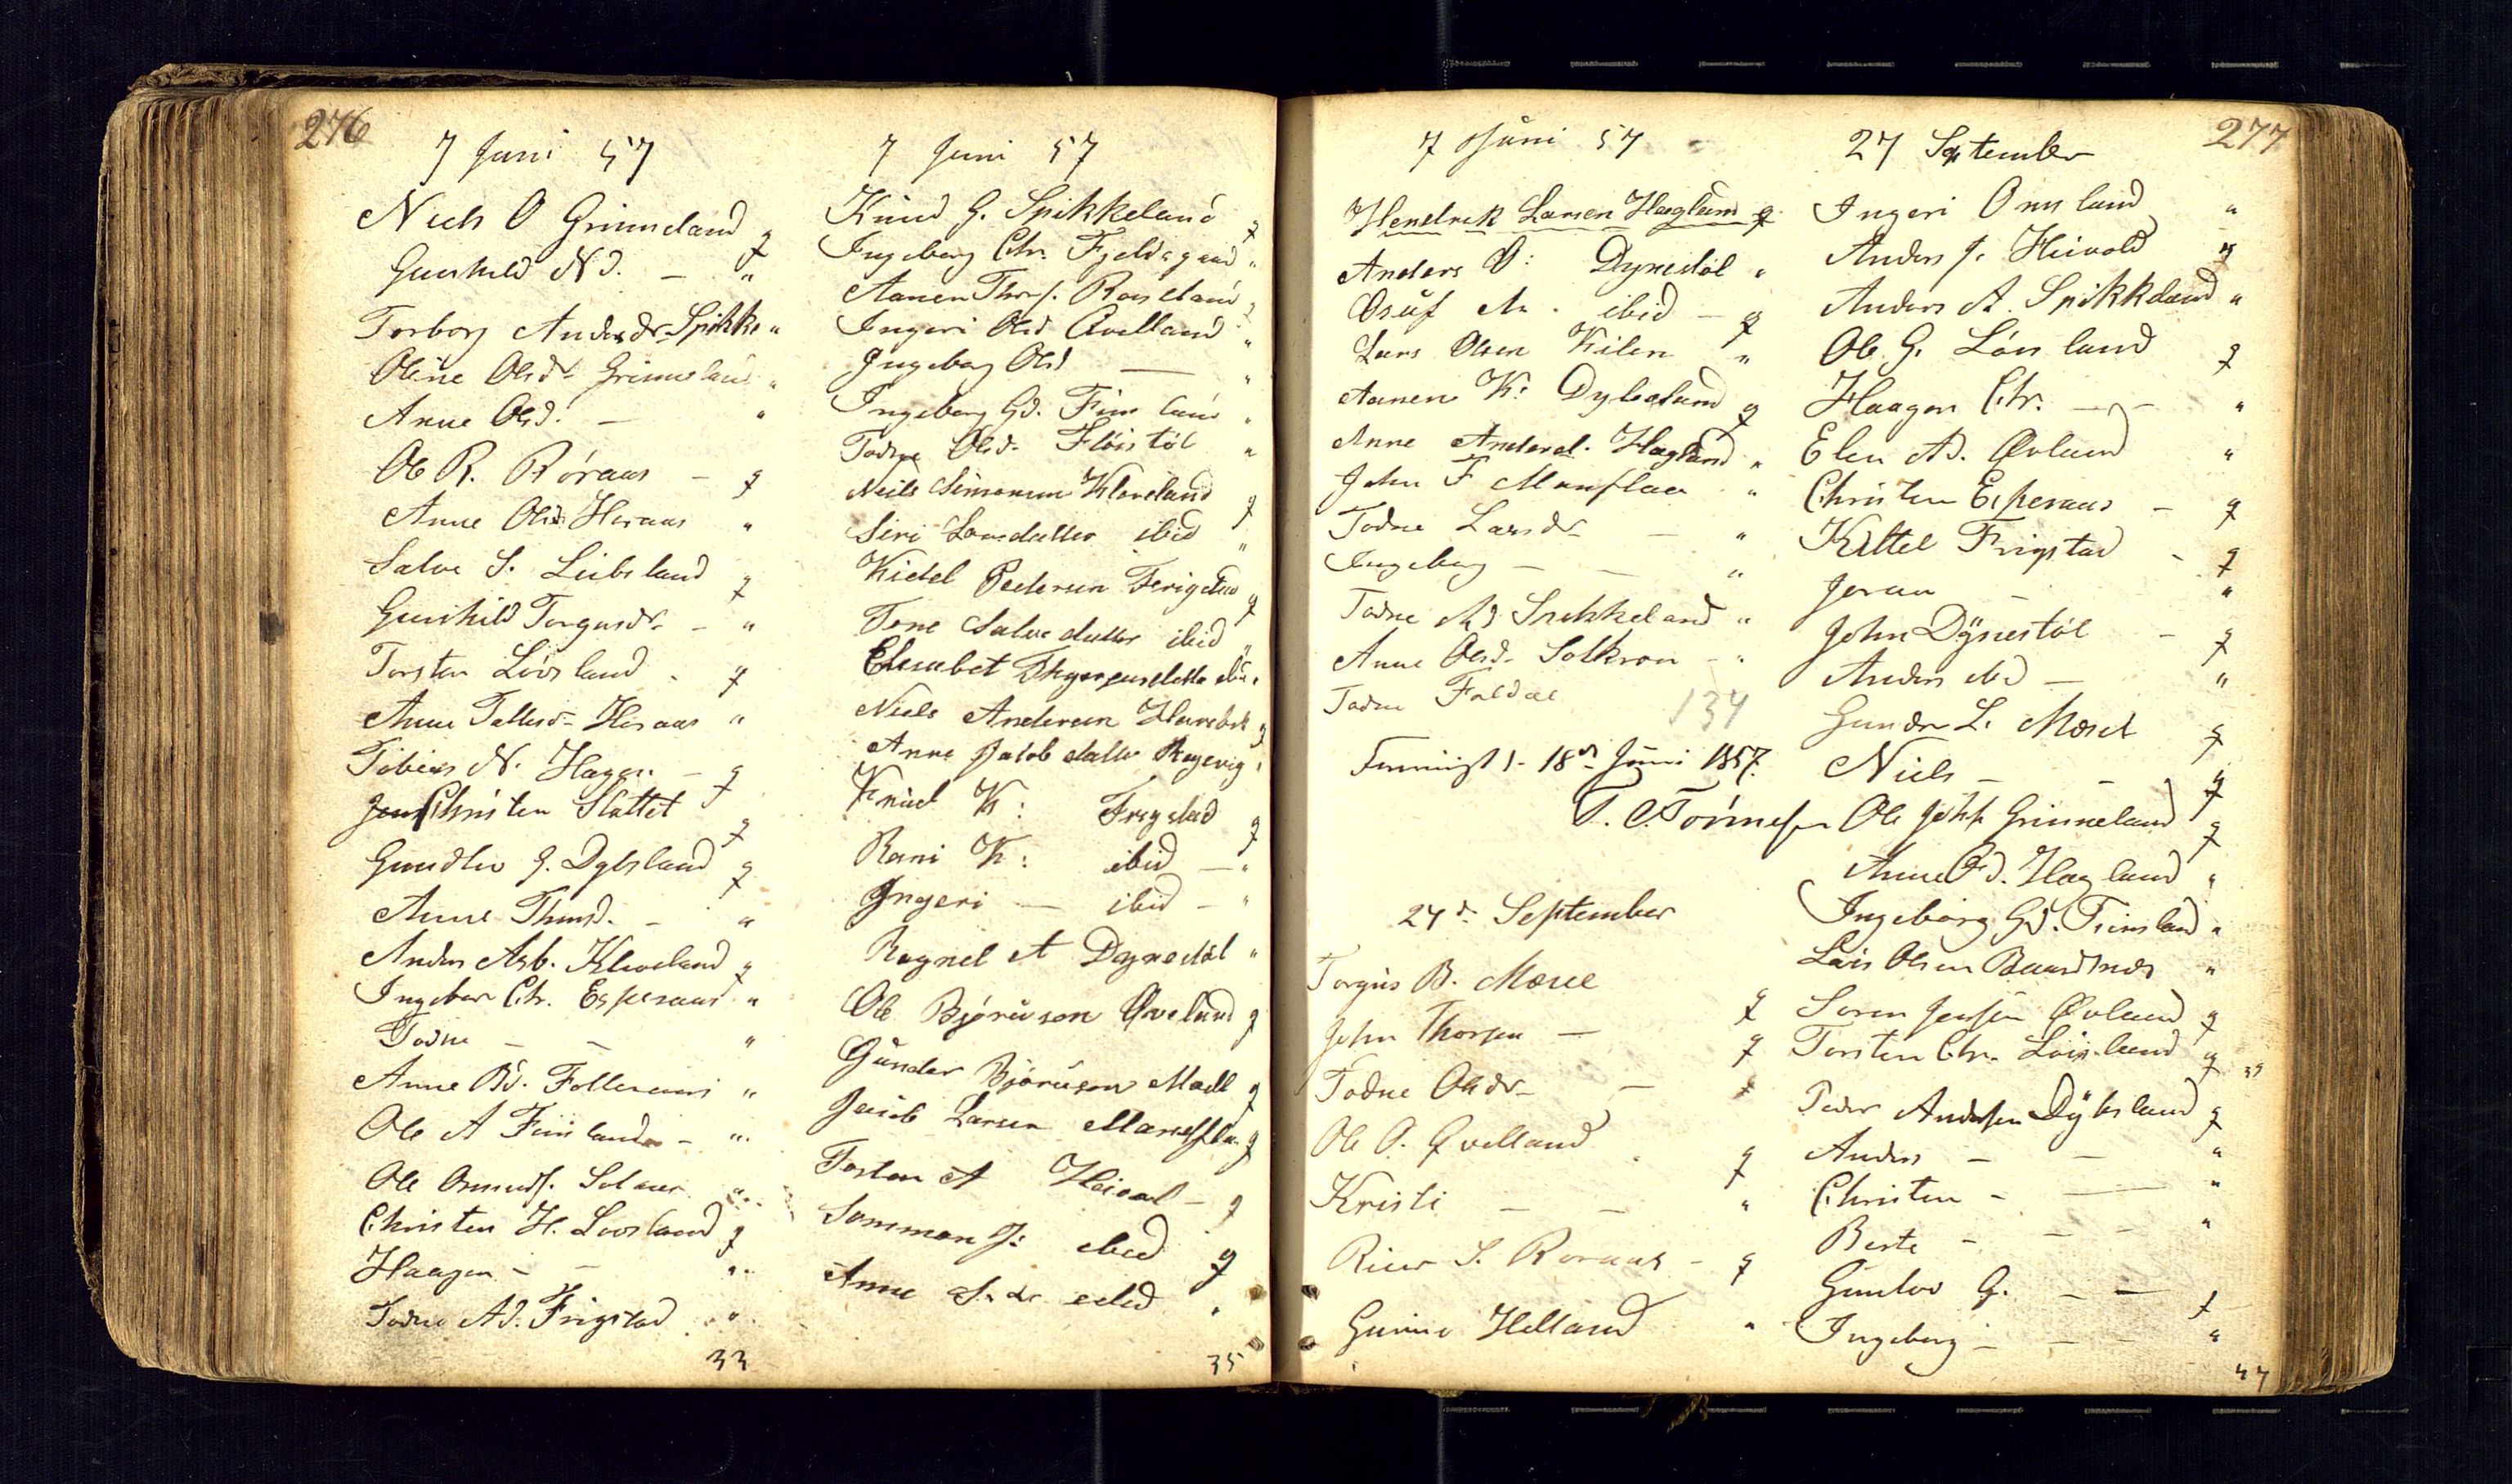 276
7 Juni 57
Niels O Grimeland g
Gunhild Nd. — "
Torborg Andersdr Spikke "
Oline Olsd. Grimeland "
Anne Olsd. — "
Ole R. Røraas — g
Anne Olsd. Heraas "
Salve S. Leibsland g
Gunhild Torgusdr. — "
Torsten Løvsland . g
Anne Tallesd. Heraas "
Tobias N. Hagen — g
Christen Slottet g
Gundlev G. Dybsland g
Anne Thomsd. — "
Anders Asb. Kleveland g
Ingebor Chr. Esperaas "
Todne — — "
Anne Bd. Folleraas "
Ole A Finsland — "
Ole Osmunds. Solaas "
Christen H. Løvsland g
Haagen — — "
Todne Ad. Frigstad "
33
7 Juni 57
Knud G. Spikkeland g
Ingeborg Chr. Fjeldsgaard "
Aanen Thors. Roiseland g
Ingeri Olsd Qvelland "
Ingeborg Olsd — "
Ingeborg Gd. Finsland "
Todne Olsd. Fløistøl "
Neils Simonsen Kleveland g
Siri Larsdatter ibid "
Kidel Pedersen Ferigstad g
Tone Salvedatter ibid "
Elisabet Thygersdatter ibid "
Niels Andersen g
Anne Jakobdatter Røgevig "
Knud K: Frigstad g
Rani K: ibid — "
Ingeri — ibid — "
Ragnel A Dynestøl "
Ole Bjøruson Øveland g
Günder Bjøruson Moell g
Jacob Larsen Mansfla g
Tosten A Heivol — g
Sommon J: ibid g
Anne S.dr ibid "
35
7 Juni 57
Hendrek Larsen Hægland g
Anders O: Dynestøl "
Osuf A . ibid — g
Lars Olsen Kilen "
Aanen K: Dybesland g
Anne Andersd. Hægland "
John F Mansflaa "
Todne Larsdr — "
Ingeborg — — "
Todne Ad Spikkeland "
Anne Olsd. Solkron — "
Todne Foldal
134
18de Juni 1857.
27d. September
Torgius B. Moseid g
John Thorsen — g
Todne Olsdr — "
Ole O. Qvelland g
Kristi — — "
Rier S. Roraas — g
Gunne Helland "
277
27 September
Ingeri Omsland "
Anders J. Heivold "
Anders A. Spikkeland "
Ole G. Løvsland g
Haagen Chr. — — "
Elen Ad. Øvland "
Christen Esperaas — g
Kittel Frigstad — g
Joran — "
John Dÿnestøl — g
Anders ibid — "
Gunder L. Moseid g
Niels — — g
Ole Johs Grimeland g
Anne Hægland "
Ingeborg Gd. Finsland "
Lars Olsen Baardsnes "
Soren Jensen Øvland g
Torsten Chr. Løvsland g
Peder Andersen Dÿbsland g
Anders — — "
Christen — — "
Berte — — — "
Gunlov G. — — g
Ingeborg — — "
47